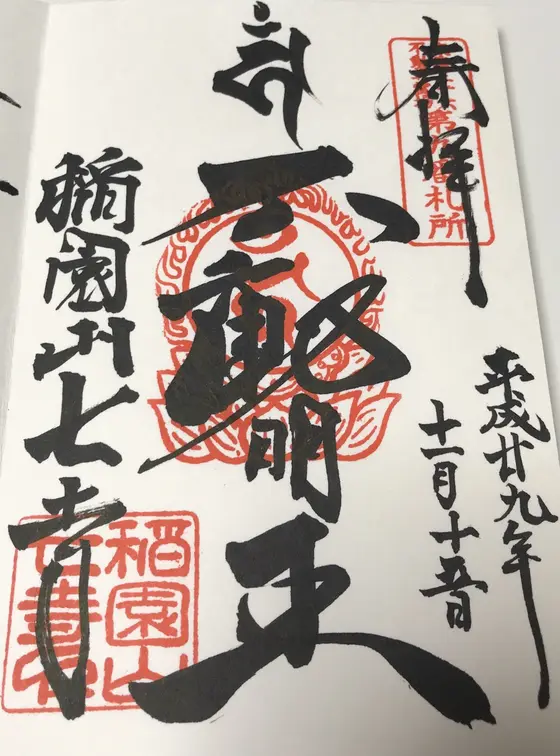 奉拝
平成廿九年
十一月十五日
不動明王
稲園山七寺
稲園山